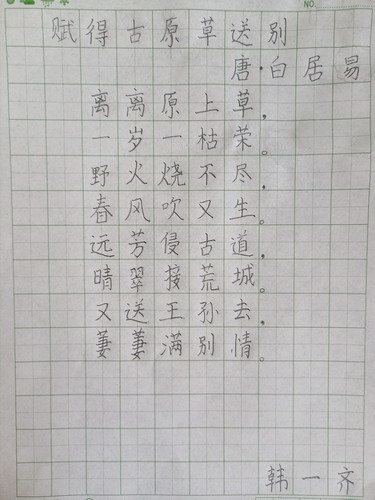 NO
赋得古原草送别
唐·白居易
离离原上草，
一岁一枯荣。
野火烧不尽，
春风吹又生。
远芳侵古道，
晴翠接荒城。
又送王孙去，
萋萋满别情。
韩一齐